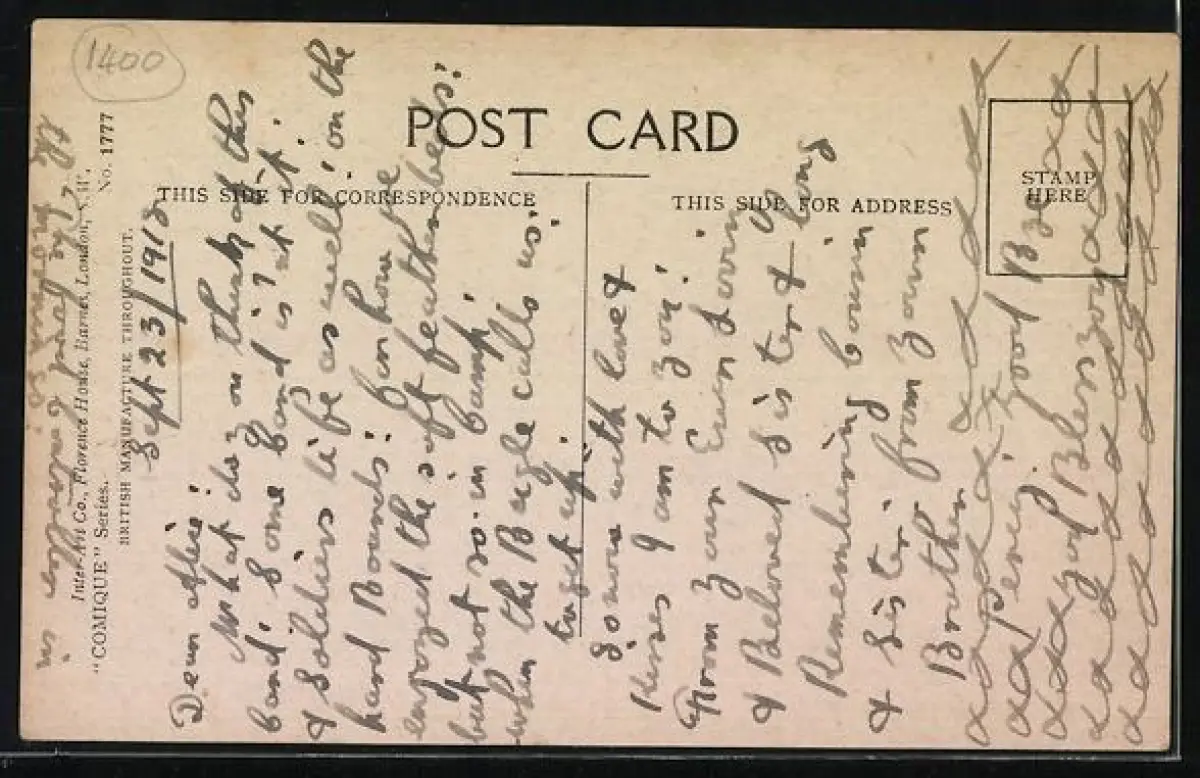 1400
POST CARD
THIS SIDE FOR CORRESPONDENCE
THIS SIDE FOR ADDRESS
STAMP
HERE
Inter-Art Co., Florence House, Barnes, London, S.W.
"COMIQUE" Series.
No. 1777
BRITISH MANUFACTURE THROUGHOUT.
Sept 23/1918
Dear
What do you think of this
Card. Some Card is it not!
A Soldiers life as well! on the
hard Boards! you have
enjoyed the soft feather beds!
but not so in Camp!
when the Bugle calls us!
to get up!
So now with love &
Kisses I am to you!
From your Ever loving
& Beloved Sister &
Remembering Cousin
& Sister from your
Brother
good B
God Bless you
in
the morning